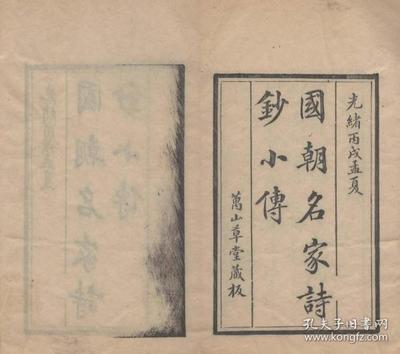 光緒丙戌孟夏
國朝名家詩
鈔小傳
萬山草堂藏板
孔夫子旧书网